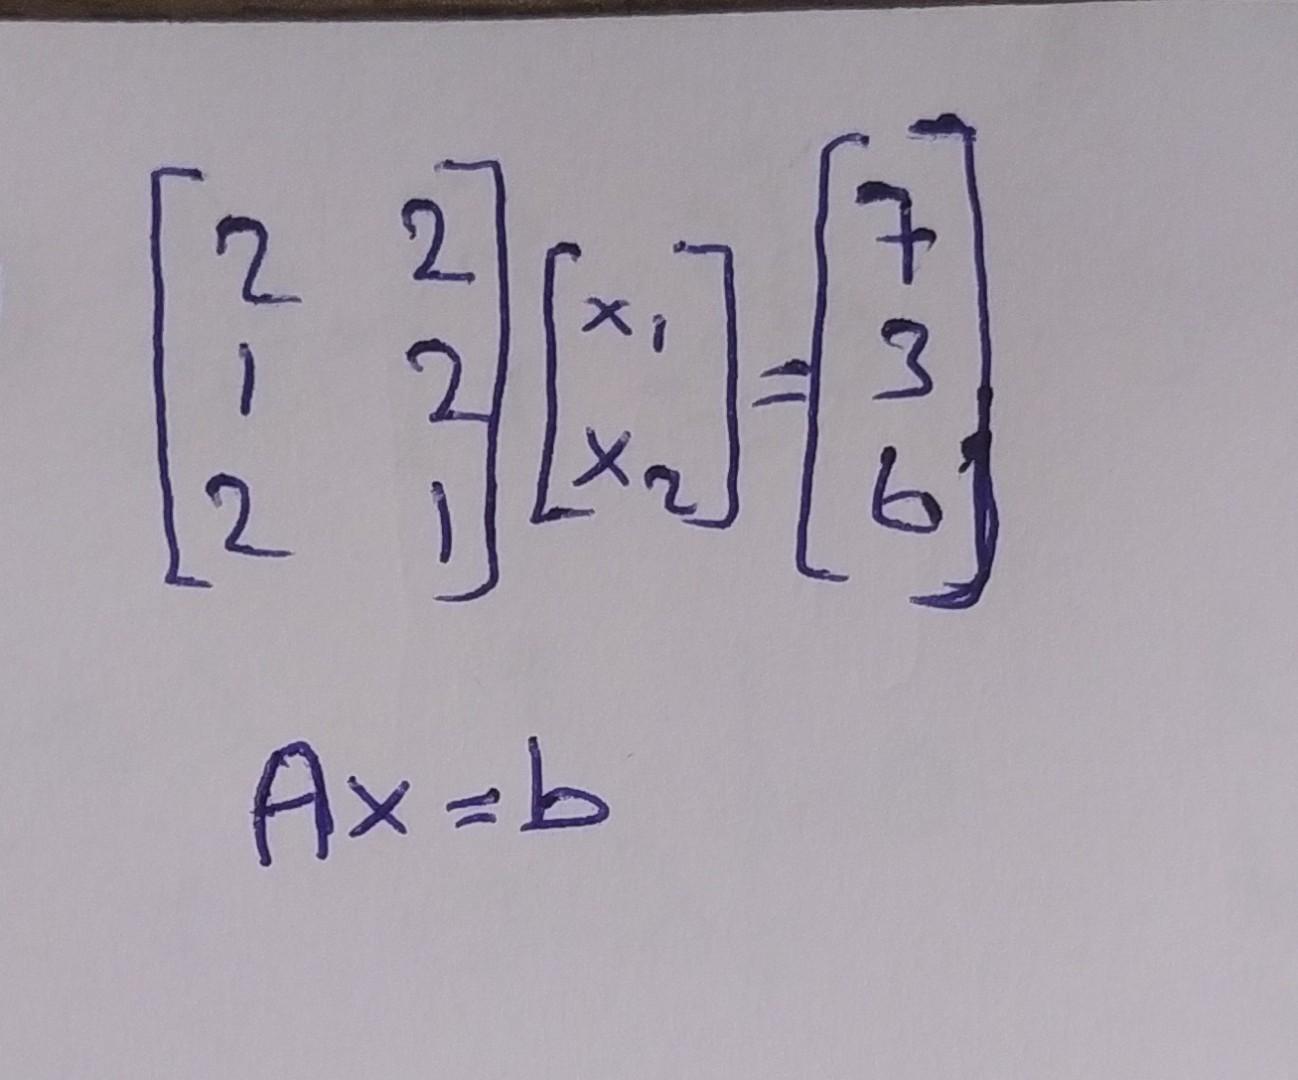 [2 2
1 2
2 1] [x₁
x₂] = [7
3
6]
Ax = b